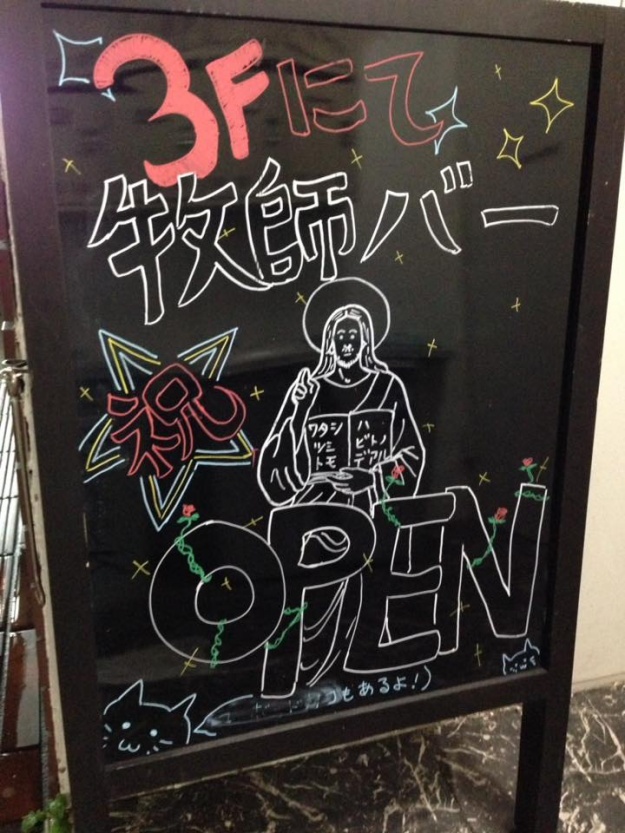 3Fにて
牧師バー
祝
ワタシ ハ
ツミ ビトノ
トモ デアル
OPEN
もあるよ!)